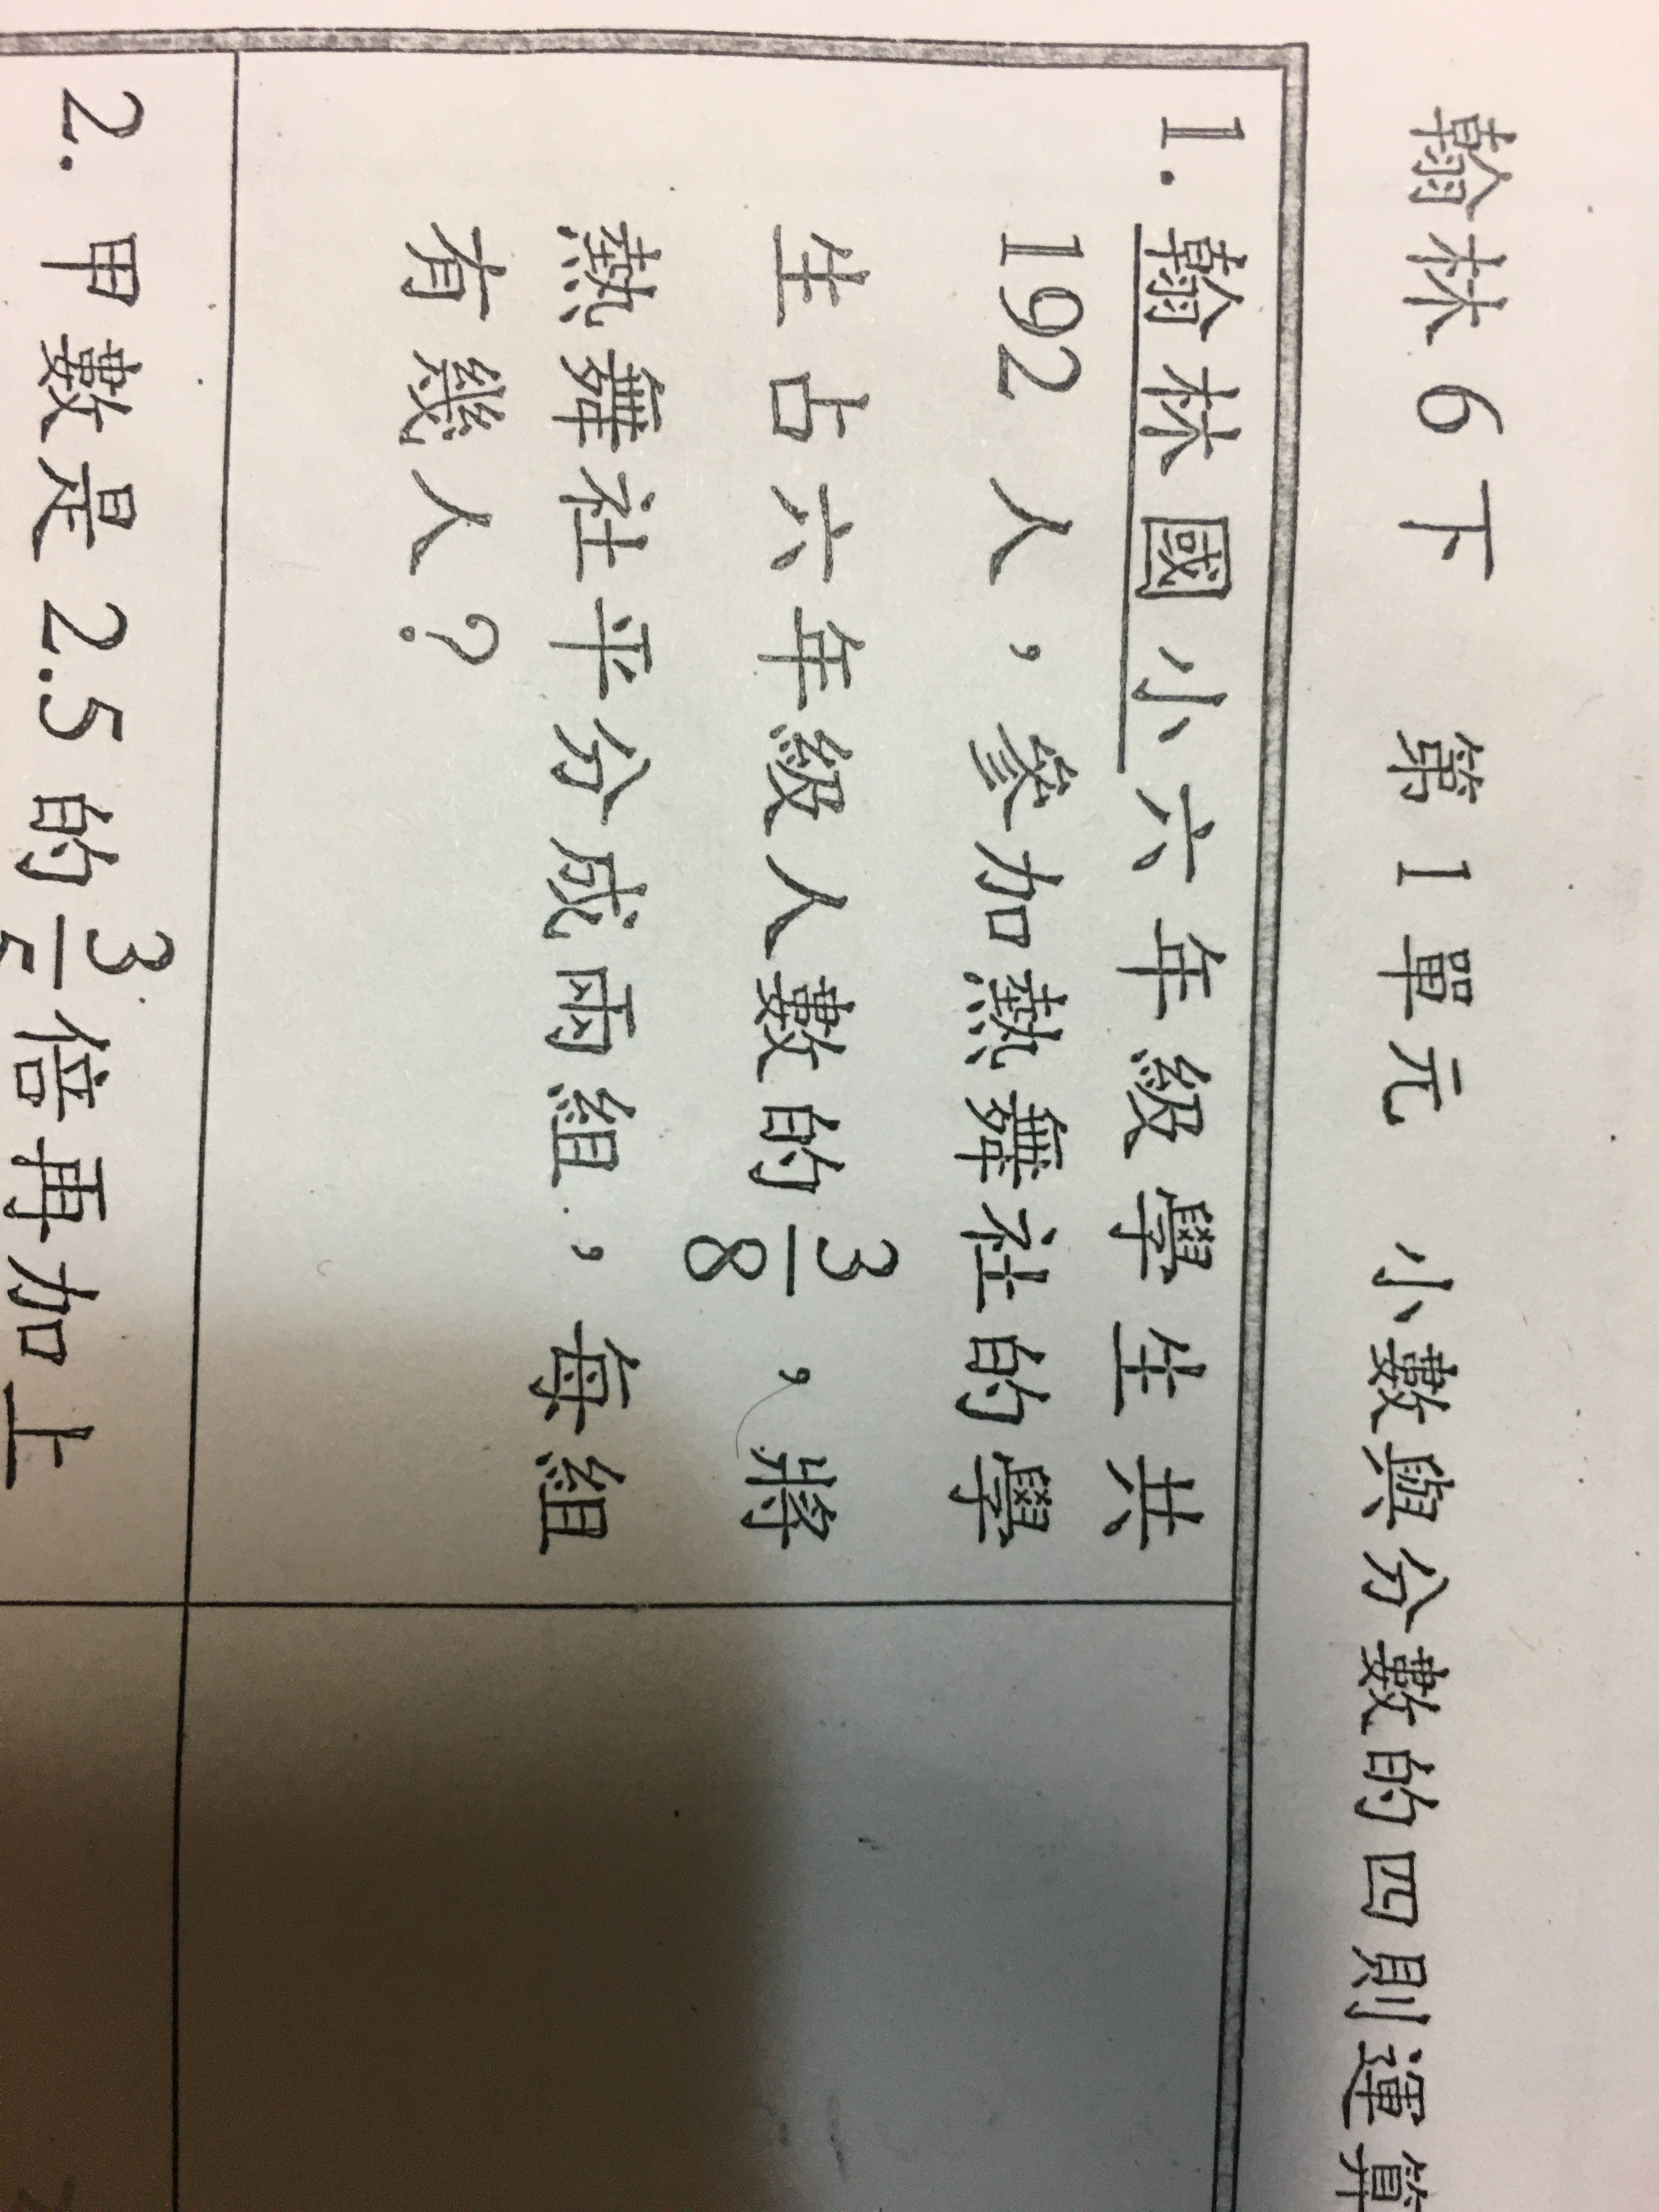 翰林6下 第1單元 小數與分數的四則運算
1. 翰林國小六年級學生共
192人,參加熱舞社的學
生占六年級人數的3/8,將
熱舞社平分成兩組,每組
有幾人?
2. 甲數是2.5的3/5倍再加上